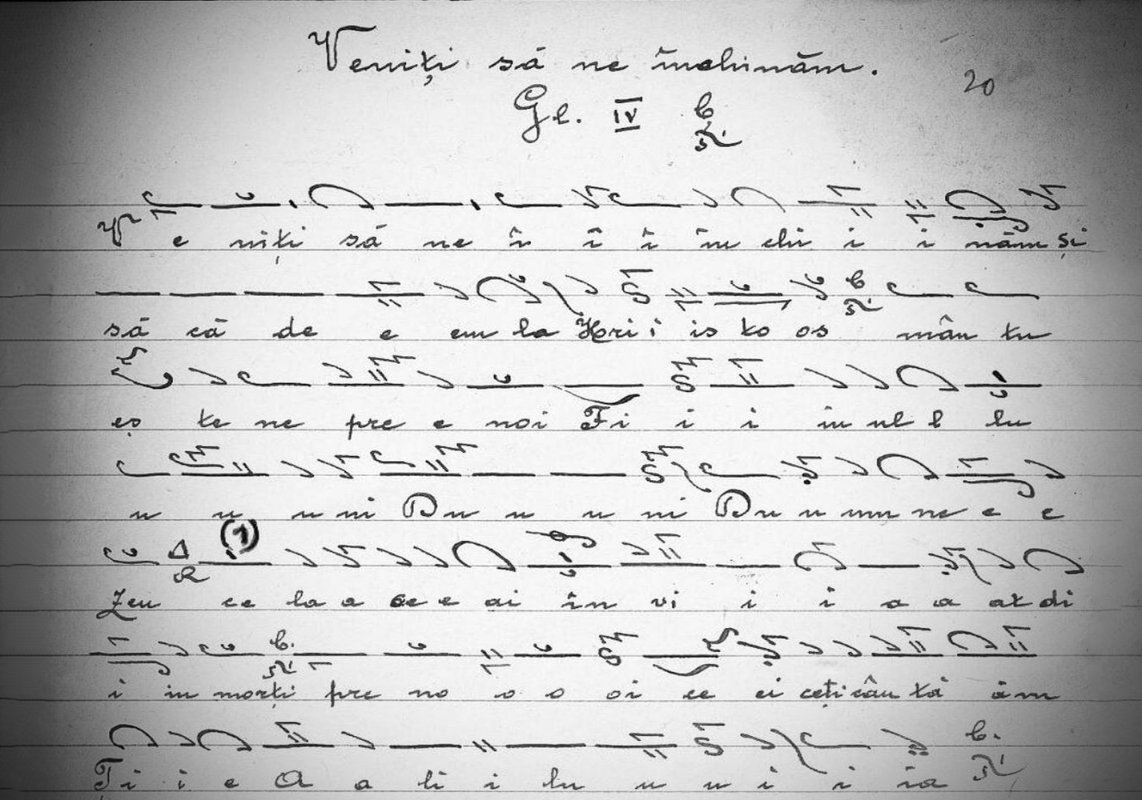 Veniți să ne închinăm.
20
Gl. IV
V e niți să ne î î î în chi i i năm și
să că de e em la Hri i is to os mân tu
eș te ne pre e noi Fi i i iu ul l lu
u u u ni Du u u ni Du u um ne e e
Zeu ce la a ce e ai în vi i i a a at di
(1)
i in morți pre no o o oi ce ei ceți cân tă ăm
Ți i i e A a li i lu u u i i ia